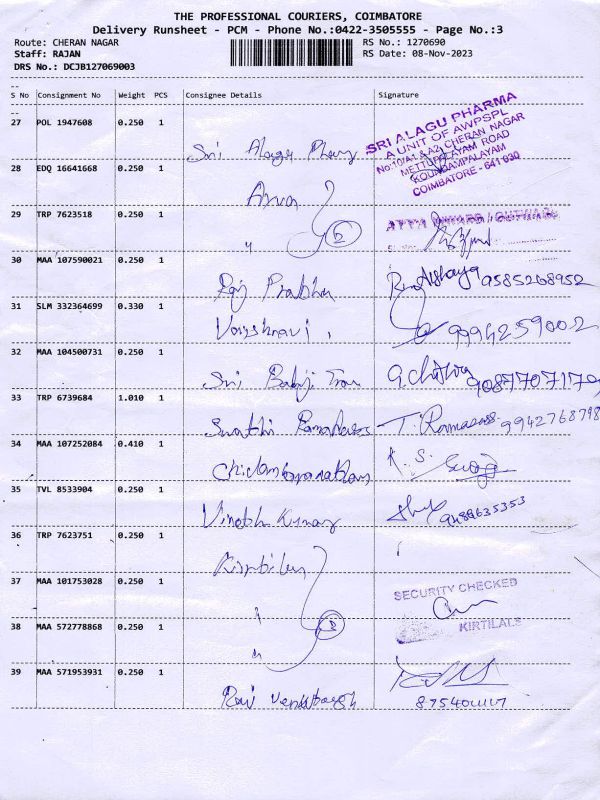 THE PROFESSIONAL COURIERS, COIMBATORE
Delivery Runsheet - PCM - Phone No.:0422-3505555 - Page No.:3
Route: CHERAN NAGAR RS No.: 1270690
Staff: RAJAN RS Date: 08-Nov-2023
DRS No.: DCJB127069003
S No Consignment No Weight PCS Consignee Details Signature
27 POL 1947608 0.250 1 Sri Alagu
SRI ALAGU PHARMA
A UNIT OF AWPSPL
No:10/A1 & A2, CHERAN NAGAR
METTUPALAYAM ROAD
KOUNDAMPALAYAM
COIMBATORE - 641 030
28 EDQ 16641668 0.250 1
29 TRP 7623518 0.250 1 " 2
30 MAA 107590021 0.250 1 Raj Prabhu Akshaya 9585268952
31 SLM 332364699 0.330 1 Vaishnavi. 9994259002
32 MAA 104500731 0.250 1 Sri Balaji
33 TRP 6739684 1.010 1 9942768798
34 MAA 107252084 0.410 1 K. S.
35 TVL 8533904 0.250 1 Vinoth Kumar 9488635353
36 TRP 7623751 0.250 1
37 MAA 101753028 0.250 1 "
SECURITY CHECKED
38 MAA 572778868 0.250 1 " 3
KIRTILALS
39 MAA 571953931 0.250 1 Ravi Venkatesh